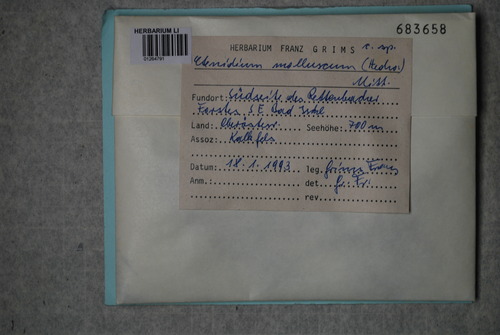 HERBARIUM LI
01264791
683658
HERBARIUM FRANZ GRIMS c. sp.
Ctenidium molluscum (Hedw.)
Mitt.
Fundort: Südseite des Rettenbacher
Forstes, S.E. Bad Ischl
Land: Oberösterr. Seehöhe: 700 m
Assoz: Kalkfels
Datum: 18.1.1993 leg. Grims Franz
Anm.: det. Gr. Fr.
rev.